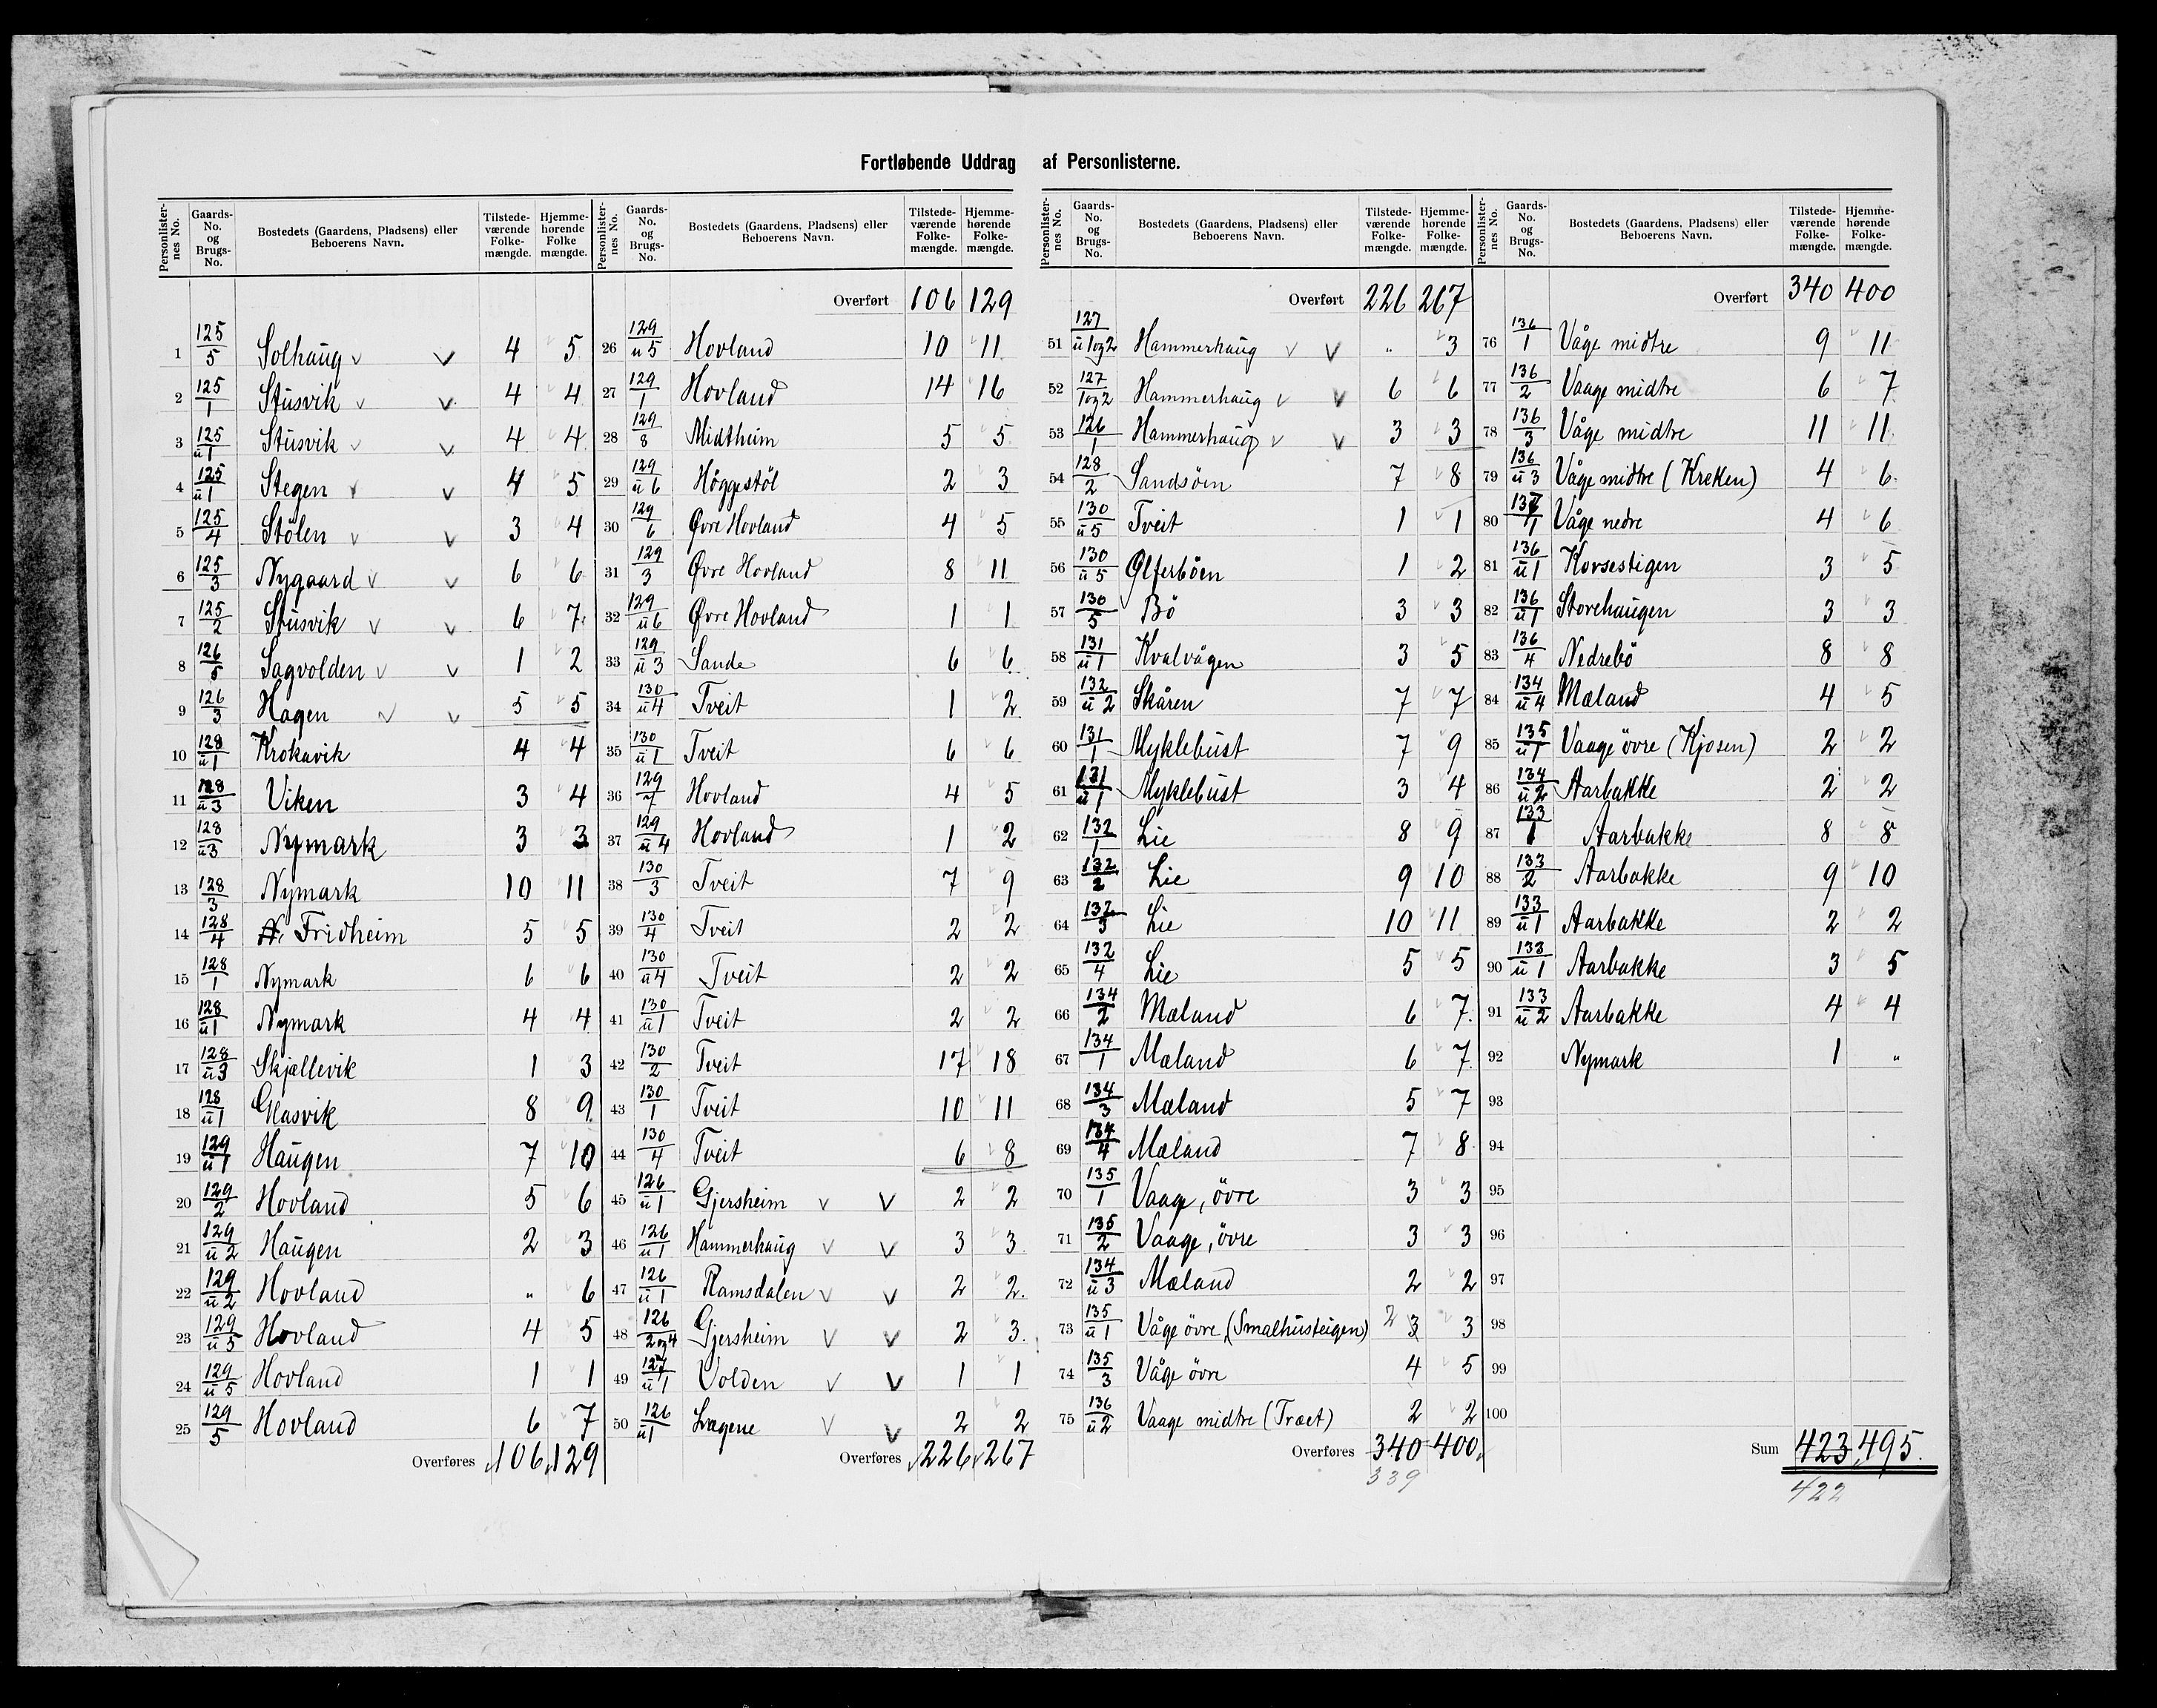 Fortløbende Uddrag af Personlisterne.
Personlister-nes No. | Gaards-No. og Brugs-No. | Bostedets (Gaardens, Pladsens) eller Beboerens Navn. | Tilstede-værende Folke-mængde. | Hjemme-hørende Folke mængde.
1 125/5 Solhaug v v 4 5
2 125/1 Stusvik v v 4 4
3 125/u1 Stusvik v v 4 4
4 125/u1 Stegen v v 4 5
5 125/4 Stølen v v 3 4
6 125/3 Nygaard v v 6 6
7 125/2 Stusvik v v 6 7
8 126/5 Sagvolden v v 1 2
9 126/3 Hagen v v 5 5
10 128/u1 Krokavik 4 4
11 128/u3 Viken 3 4
12 128/u3 Nymark 3 3
13 128/3 Nymark 10 11
14 128/4 Fridheim 5 5
15 128/1 Nymark 6 6
16 128/u1 Nymark 4 4
17 128/u3 Skjællevik 1 3
18 128/u1 Glasvik 8 9
19 129/u1 Haugen 7 10
20 129/2 Hovland 5 6
21 129/u2 Haugen 2 3
22 129/u2 Hovland " 6
23 129/u5 Hovland 4 5
24 129/u5 Hovland 1 1
25 129/5 Hovland 6 7
Overføres 106 129
Personlister-nes No. | Gaards-No. og Brugs-No. | Bostedets (Gaardens, Pladsens) eller Beboerens Navn. | Tilstede-værende Folke-mængde. | Hjemme-hørende Folke-mængde.
Overført 106 129
26 129/u5 Hovland 10 11
27 129/1 Hovland 14 16
28 129/8 Midtheim 5 5
29 129/u6 Höggestöl 2 3
30 129/6 Øvre Hovland 4 5
31 129/3 Øvre Hovland 8 11
32 129/u6 Øvre Hovland 1 1
33 129/u3 Sande 6 6
34 130/u4 Tveit 1 2
35 130/u1 Tveit 6 6
36 129/7 Hovland 4 5
37 129/u4 Hovland 1 2
38 130/3 Tveit 7 9
39 130/4 Tveit 2 2
40 130/u4 Tveit 2 2
41 130/u1 Tveit 2 2
42 130/2 Tveit 17 18
43 130/1 Tveit 10 11
44 130/4 Tveit 6 8
45 126/u1 Gjersheim v v 2 2
46 126/u1 Hammerhaug v v 3 3
47 126/u1 Ramsdalen v v 2 2
48 126/2og4 Gjersheim v v 2 3
49 127/u1 Volden v v 1 1
50 126/u1 Lægene v v 2 2
Overføres 226 267
Personlister-nes No. | Gaards-No. og Brugs-No. | Bostedets (Gaardens, Pladsens) eller Beboerens Navn. | Tilstede-værende Folke-mængde. | Hjemme-hørende Folke-mængde.
Overført 226 267
51 127/u1og2 Hammerhaug v v " 3
52 127/1og2 Hammerhaug v v 6 6
53 126/1 Hammerhaug v v 3 3
54 128/2 Sandsöen 7 8
55 130/u5 Tveit 1 1
56 130/u5 Olferböen 1 2
57 130/5 Bö 3 3
58 131/u1 Kvalvågen 3 5
59 132/u2 Skåren 7 7
60 131/1 Myklebust 7 9
61 131/u1 Myklebust 3 4
62 132/1 Lie 8 9
63 132/2 Lie 9 10
64 132/3 Lie 10 11
65 132/4 Lie 5 5
66 134/2 Mæland 6 7
67 134/1 Mæland 6 7
68 134/3 Mæland 5 7
69 134/4 Mæland 7 8
70 135/1 Vaage, övre 3 3
71 135/2 Vaage, övre 3 3
72 134/u3 Mæland 2 2
73 135/u1 Våge övre (Smalhusteigen) 2 3 3
74 135/3 Våge övre 4 5
75 136/u2 Vaage midtre (Træet) 2 2
Overføres 340 400
339
Personlister-nes No. | Gaards-No. og Brugs-No. | Bostedets (Gaardens, Pladsens) eller Beboerens Navn. | Tilstede-værende Folke-mængde. | Hjemme-hørende Folke-mængde.
Overført 340 400
76 136/1 Våge midtre 9 11
77 136/2 Vaage midtre 6 7
78 136/3 Våge midtre 11 11
79 136/u3 Våge midtre (Kreken) 4 6
80 137/1 Våge nedre 4 6
81 136/u1 Korsestigen 3 5
82 136/u1 Storehaugen 3 3
83 136/4 Nedrebö 8 8
84 134/u4 Mæland 4 5
85 135/u1 Vaage övre (Kjosen) 2 2
86 134/u2 Aarbakke 2 2
87 133/1 Aarbakke 8 8
88 133/2 Aarbakke 9 10
89 133/u1 Aarbakke 2 2
90 133/u1 Aarbakke 3 5
91 133/u2 Aarbakke 4 4
92 Nymark 1 "
93
94
95
96
97
98
99
100
Sum 423 495.
422